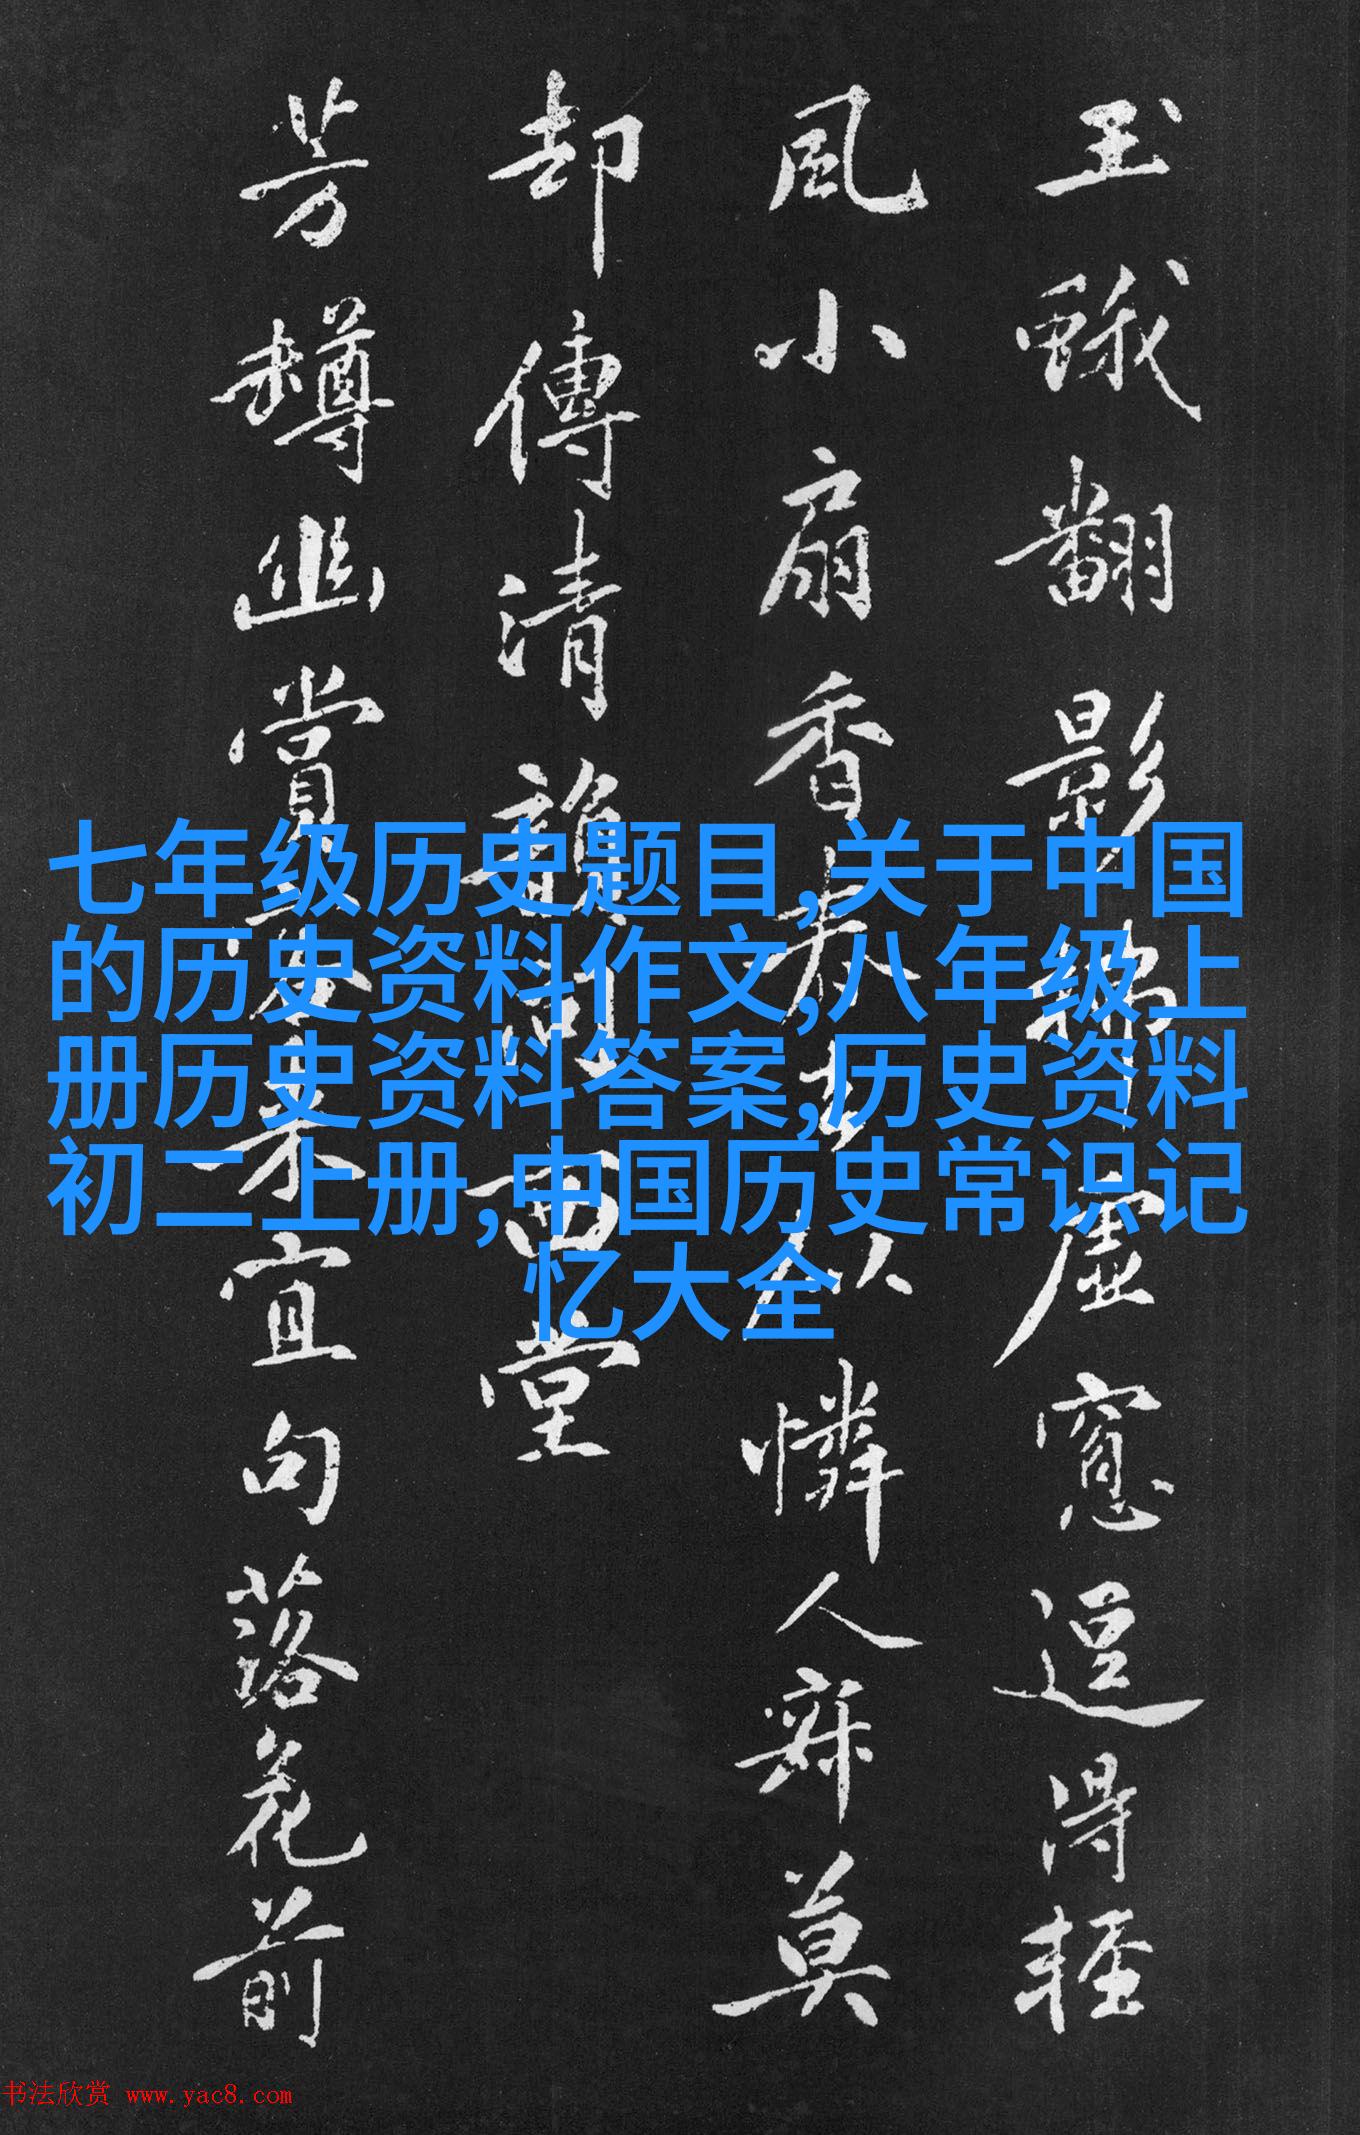 玉蛾翻影
虛窻逗得輕
風小扇香
憐人寐莫
却傳清韻
西堂
芳樽幽賞
宜句落花前
七年级历史题目,关于中国
的历史资料作文,八年级上
册历史资料答案,历史资料
初二上册,中国历史常识记
忆大全
书法欣赏 www.yac8.com